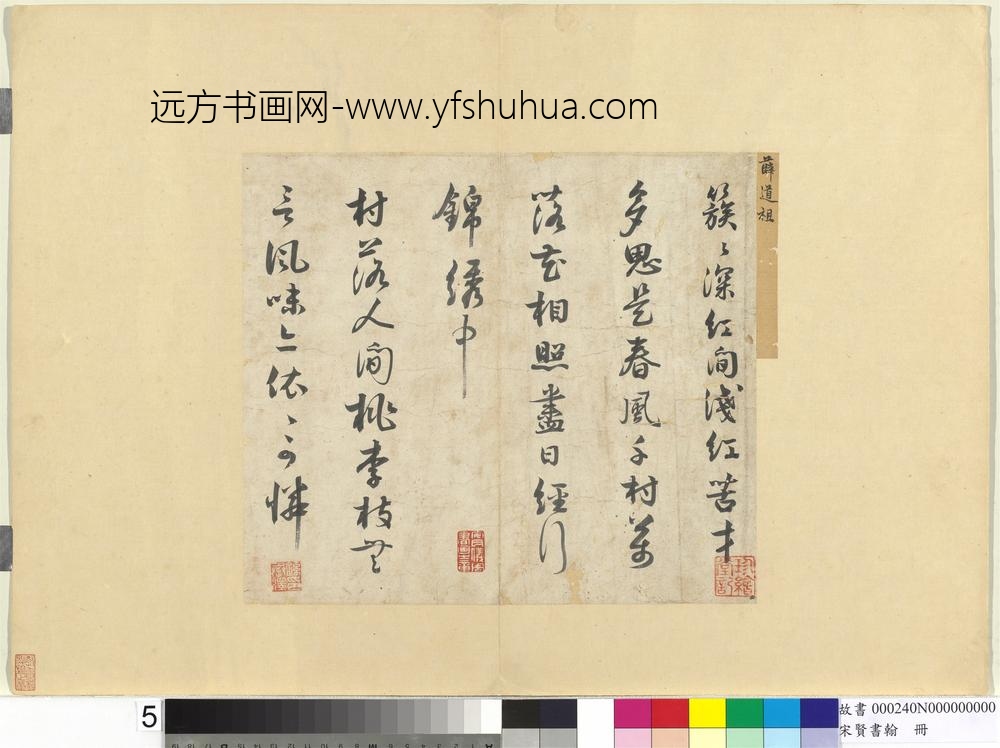 远方书画网-www.yfshuhua.com
薛道祖
簇〻深红间浅红苦才
多思是春風千村萬
落花相照盡日經行
錦绣中
村落人间桃李枝無
言風味亦依〻可憐
5
故書 000240N000000000
宋賢書翰 冊